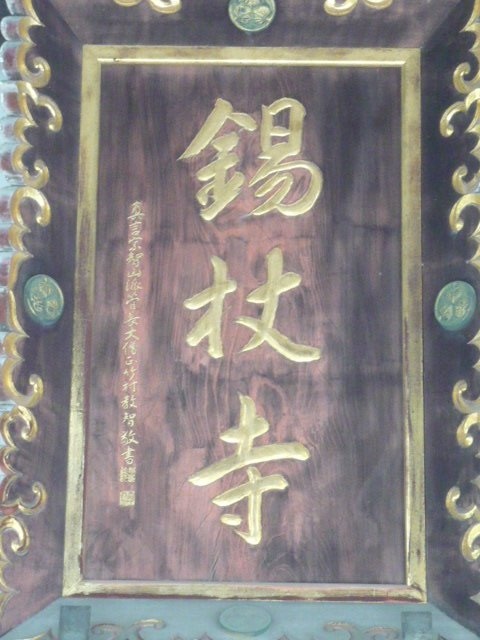 錫杖寺
真言宗智山派管長大僧正竹村教智敬書